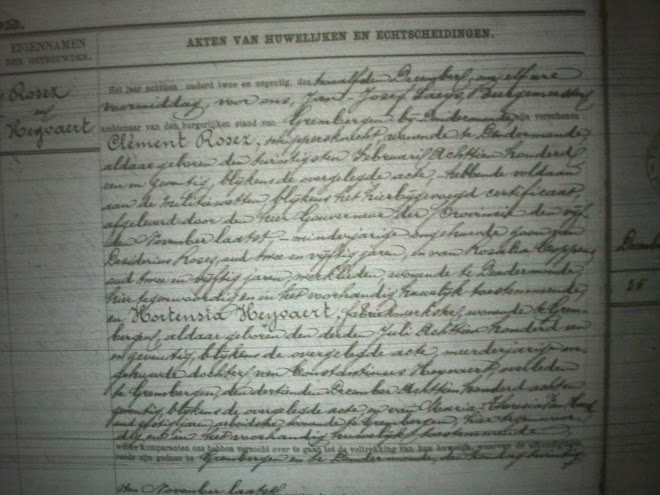 92.
EIGENNAMEN
DER GETROUWDEN.
Rosez
en
Heyvaert
AKTEN VAN HUWELIJKEN EN ECHTSCHEIDINGEN.
Het jaar achttien onderd twee en negentig, den twaalfden December, om elf ure
voormiddag, voor ons, Jan Josef Burgemeester
ambtenaar van den burgerlijken stand van Grembergen bij Dendermonde, zijn verschenen
Clément Rosez, schippersknecht, wonende te Dendermonde,
aldaar geboren den twintigsten Februarij Achttien honderd
een en zeventig, blijkens de overgelegde acte, hebbende voldaan
aan de militiewetten blijkens het hierbijgevoegd certificaat
afgeleverd door den heer Gouverneur der Provincie den vijf
den November laatst, minderjarige ongehuwde zoon van
Desiderius Rosez, oud twee en vijftig jaren, en van Rosalia
oud twee en vijftig jaren, werklieden, wonende te Dendermonde,
hier tegenwoordig en in het voorhandig huwelijk toestemmende,
en Hortensia Heyvaert, fabriekwerkster, wonende te Grem
bergen, aldaar geboren den derde Juli Achttien honderd en
en zeventig, blijkens de overgelegde acte, meerderjarige on
gehuwde dochter van Constantinus Heyvaert, overleden
te Grembergen, den dertienden December Achttien honderd achten
zeventig, blijkens de overgelegde acte, en van Maria Theresia Van
oud jaren, wonende te Grembergen, hier tegenwoor
dig en in het voorhandig huwelijk toestemmende
welke komparanten ons hebben verzocht over te gaan tot de voltrekking van hun huwelijk, waarvan de afkondigingen
zijn gedaan te Grembergen en te Dendermonde, de zondag twintig
sten November laatst
26